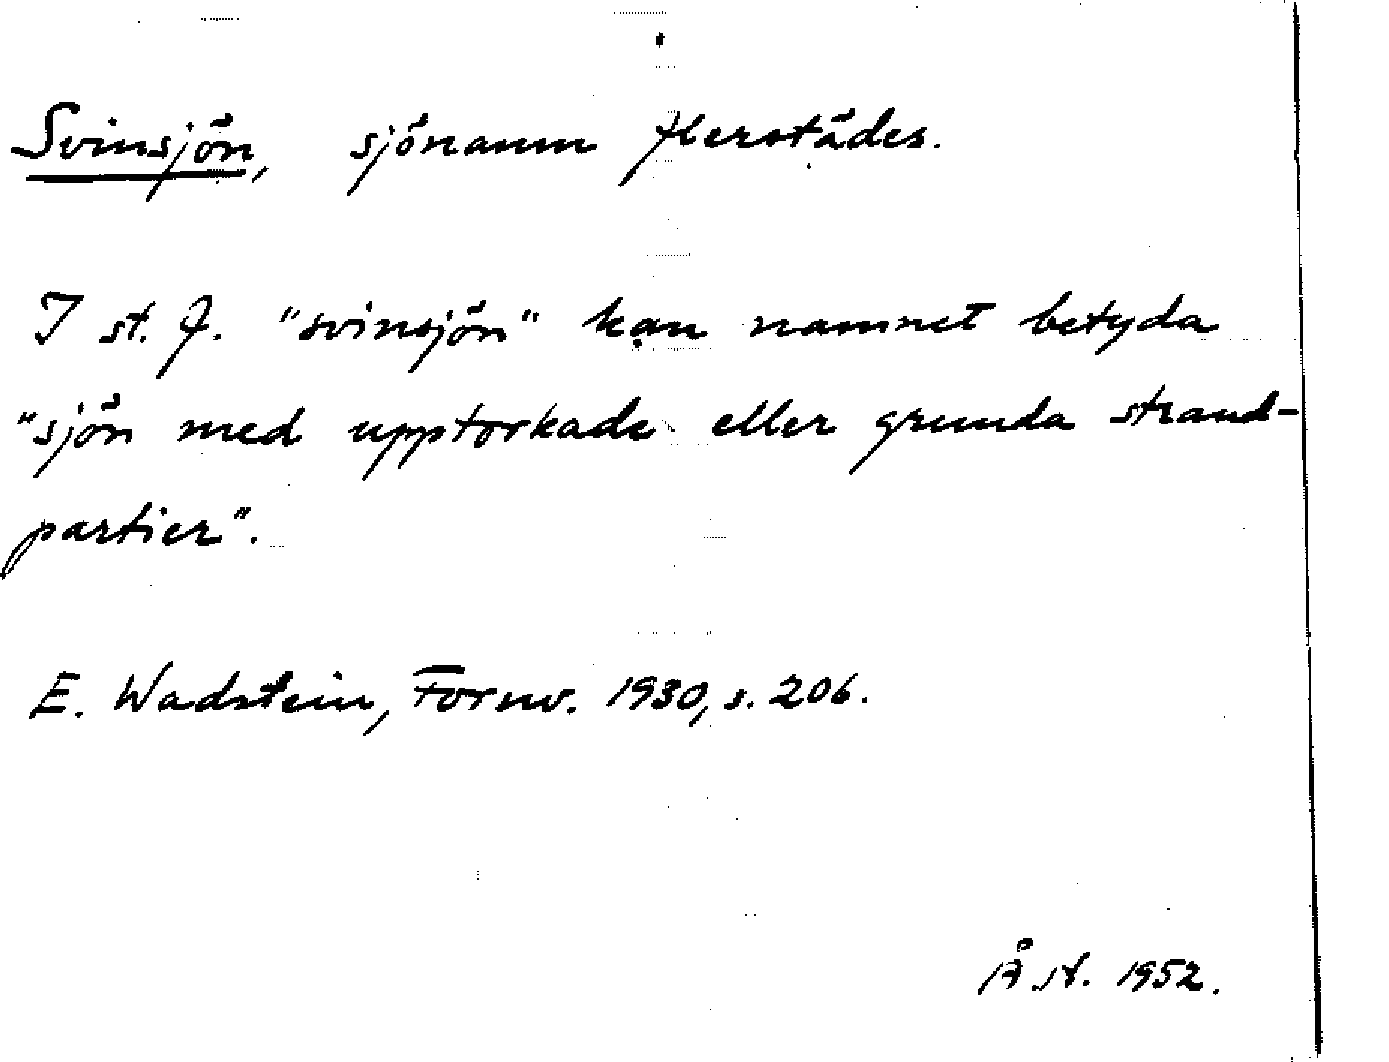 Svinsjön, sjönamn flerstädes.
I st. f. "svinsjön" kan namnet betyda
"sjön med upptorkade eller grunda strand-
partier".
E. Wadstein, Fornv. 1930, s. 206.
Å.N. 1952.